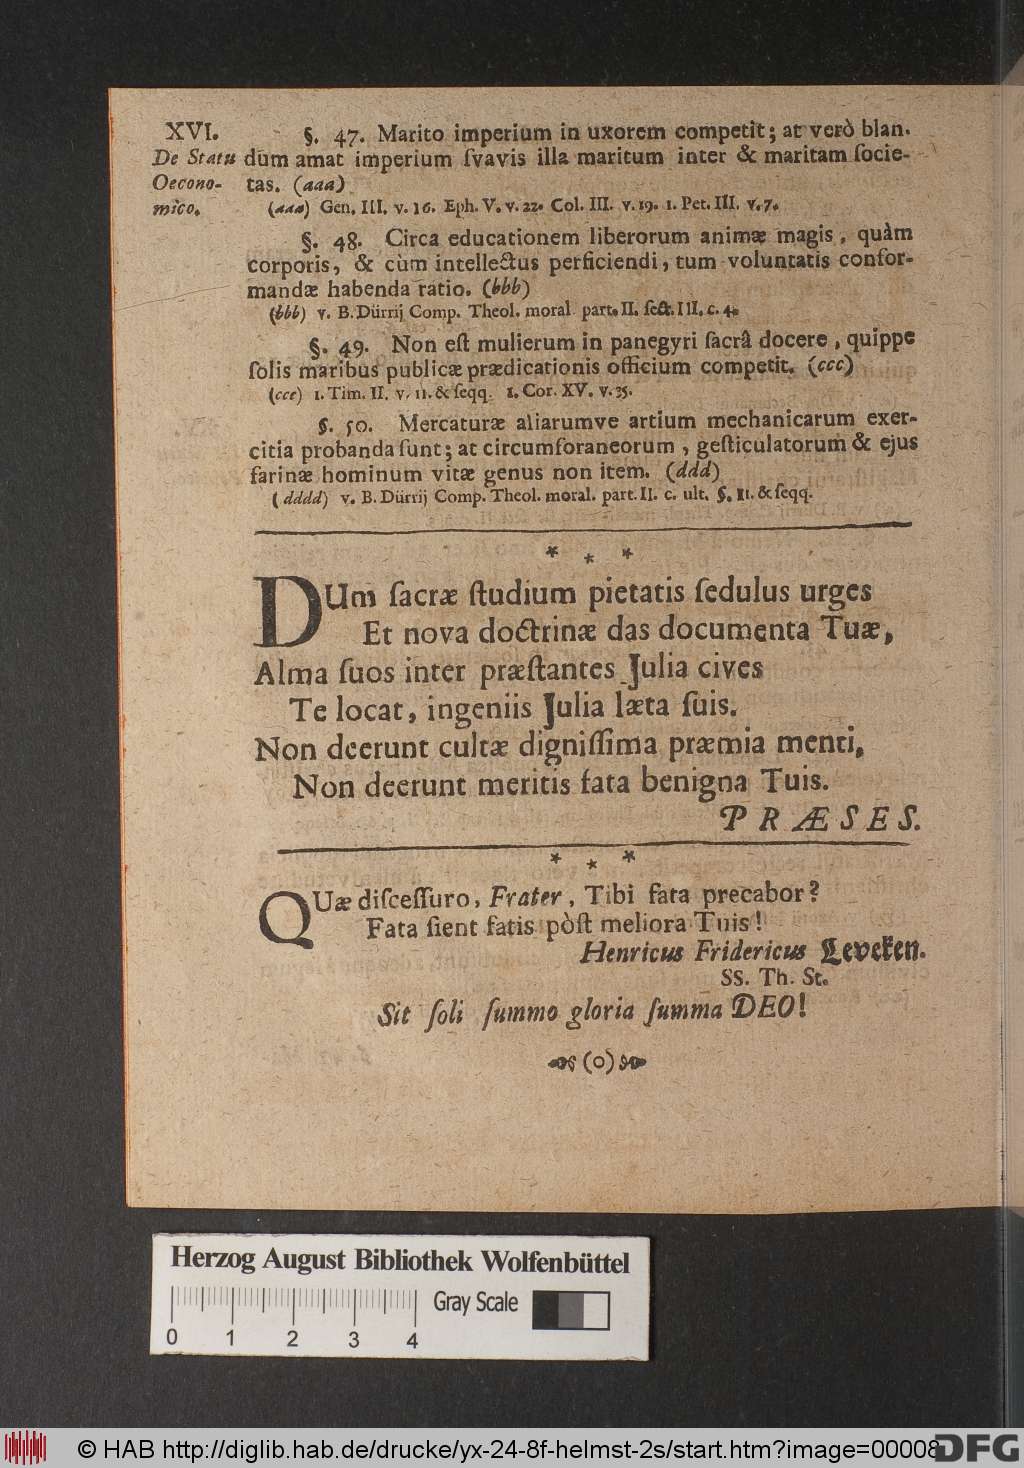 XVI.
De Statu
Oecono-
mico.
§. 47. Marito imperium in uxorem competit; at verò blan-
dum amat imperium ſvavis illa maritum inter & maritam ſocie-
tas. (aaa)
(aaa) Gen. III. v. 16. Eph. V. v. 22. Col. III. v. 19. 1. Pet. III. v. 7.
§. 48. Circa educationem liberorum animæ magis, quàm
corporis, & cùm intellectus perficiendi, tum voluntatis confor-
mandæ habenda ratio. (bbb)
(bbb) v. B. Dürrij Comp. Theol. moral part. II. ſect. III. c. 4.
§. 49. Non eſt mulierum in panegyri ſacrâ docere, quippe
ſolis maribus publicæ prædicationis officium competit. (ccc)
(ccc) 1. Tim. II. v. 11. & ſeqq. 1. Cor. XV. v. 35.
§. 50. Mercaturæ aliarumve artium mechanicarum exer-
citia probanda ſunt; at circumforaneorum, geſticulatorum & ejus
farinæ hominum vitæ genus non item. (ddd)
(dddd) v. B. Dürrij Comp. Theol. moral. part. II. c. ult. §. 11. & ſeqq.
* * *
DUm ſacræ ſtudium pietatis ſedulus urges
Et nova doctrinæ das documenta Tuæ,
Alma ſuos inter præſtantes Julia cives
Te locat, ingeniis Julia læta ſuis.
Non deerunt cultæ digniſſima præmia menti,
Non deerunt meritis fata benigna Tuis.
PRÆSES.
* * *
QUæ diſceſſuro, Frater, Tibi fata precabor?
Fata ſient fatis pòſt meliora Tuis!
Henricus Fridericus Leveken.
SS. Th. St.
Sit ſoli ſummo gloria ſumma DEO!
(o)
Herzog August Bibliothek Wolfenbüttel
Gray Scale
0 1 2 3 4
© HAB http://diglib.hab.de/drucke/yx-24-8f-helmst-2s/start.htm?image=00008
DFG